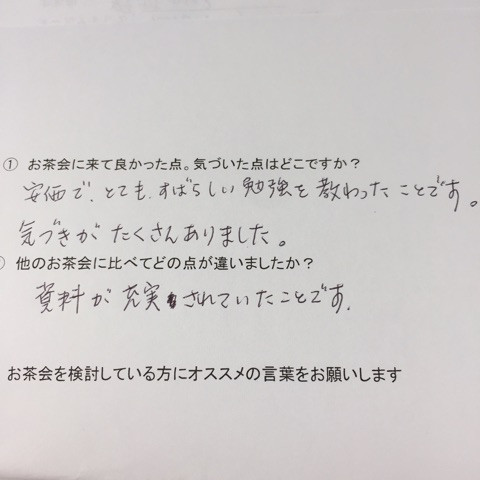 ① お茶会に来て良かった点。気づいた点はどこですか？
安価で、とても、すばらしい勉強を教わったことです。
気づきがたくさんありました。
他のお茶会に比べてどの点が違いましたか？
資料が充実されていたことです.
お茶会を検討している方にオススメの言葉をお願いします